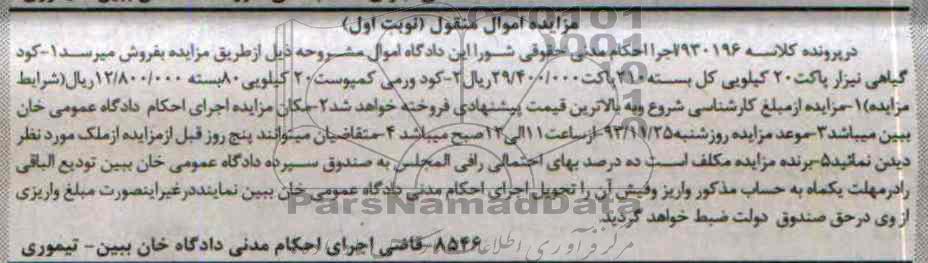 مزایده اموال منقول (نوبت اول)
درپرونده کلاسه ۹۳۰۱۹۶/اجرا احکام مدنی حقوقی شورا این دادگاه اموال مشروحه ذیل ازطریق مزایده بفروش میرسد۱-کود
گیاهی نیزار پاکت۲۰ کیلویی کل بسته۲۱۰پاکت۲۹/۴۰۰/۰۰۰ریال۲-کود ورمی کمپوست۲۰ کیلویی۸۰بسته ۱۲/۸۰۰/۰۰۰ریال(شرایط
مزایده)۱-مزایده ازمبلغ کارشناسی شروع وبه بالاترین قیمت پیشنهادی فروخته خواهد شد۲-مکان مزایده اجرای احکام دادگاه عمومی خان
ببین میباشد۳-موعد مزایده روزشنبه۹۳/۱۱/۲۵-ازساعت۱۱الی۱۲صبح میباشد ۴-متقاضیان میتوانند پنج روز قبل ازمزایده ازملک مورد نظر
دیدن نمائید۵-برنده مزایده مکلف است ده درصد بهای احتمالی رافی المجلس به صندوق سپرده دادگاه عمومی خان ببین تودیع الباقی
رادرمهلت یکماه به حساب مذکور واریز وفیش آن را تحویل اجرای احکام مدنی دادگاه عمومی خان ببین نماینددرغیراینصورت مبلغ واریزی
از وی درحق صندوق دولت ضبط خواهد گردید
۸۵۴۶-قاضی اجرای احکام مدنی دادگاه خان ببین- تیموری
ParsNamadData